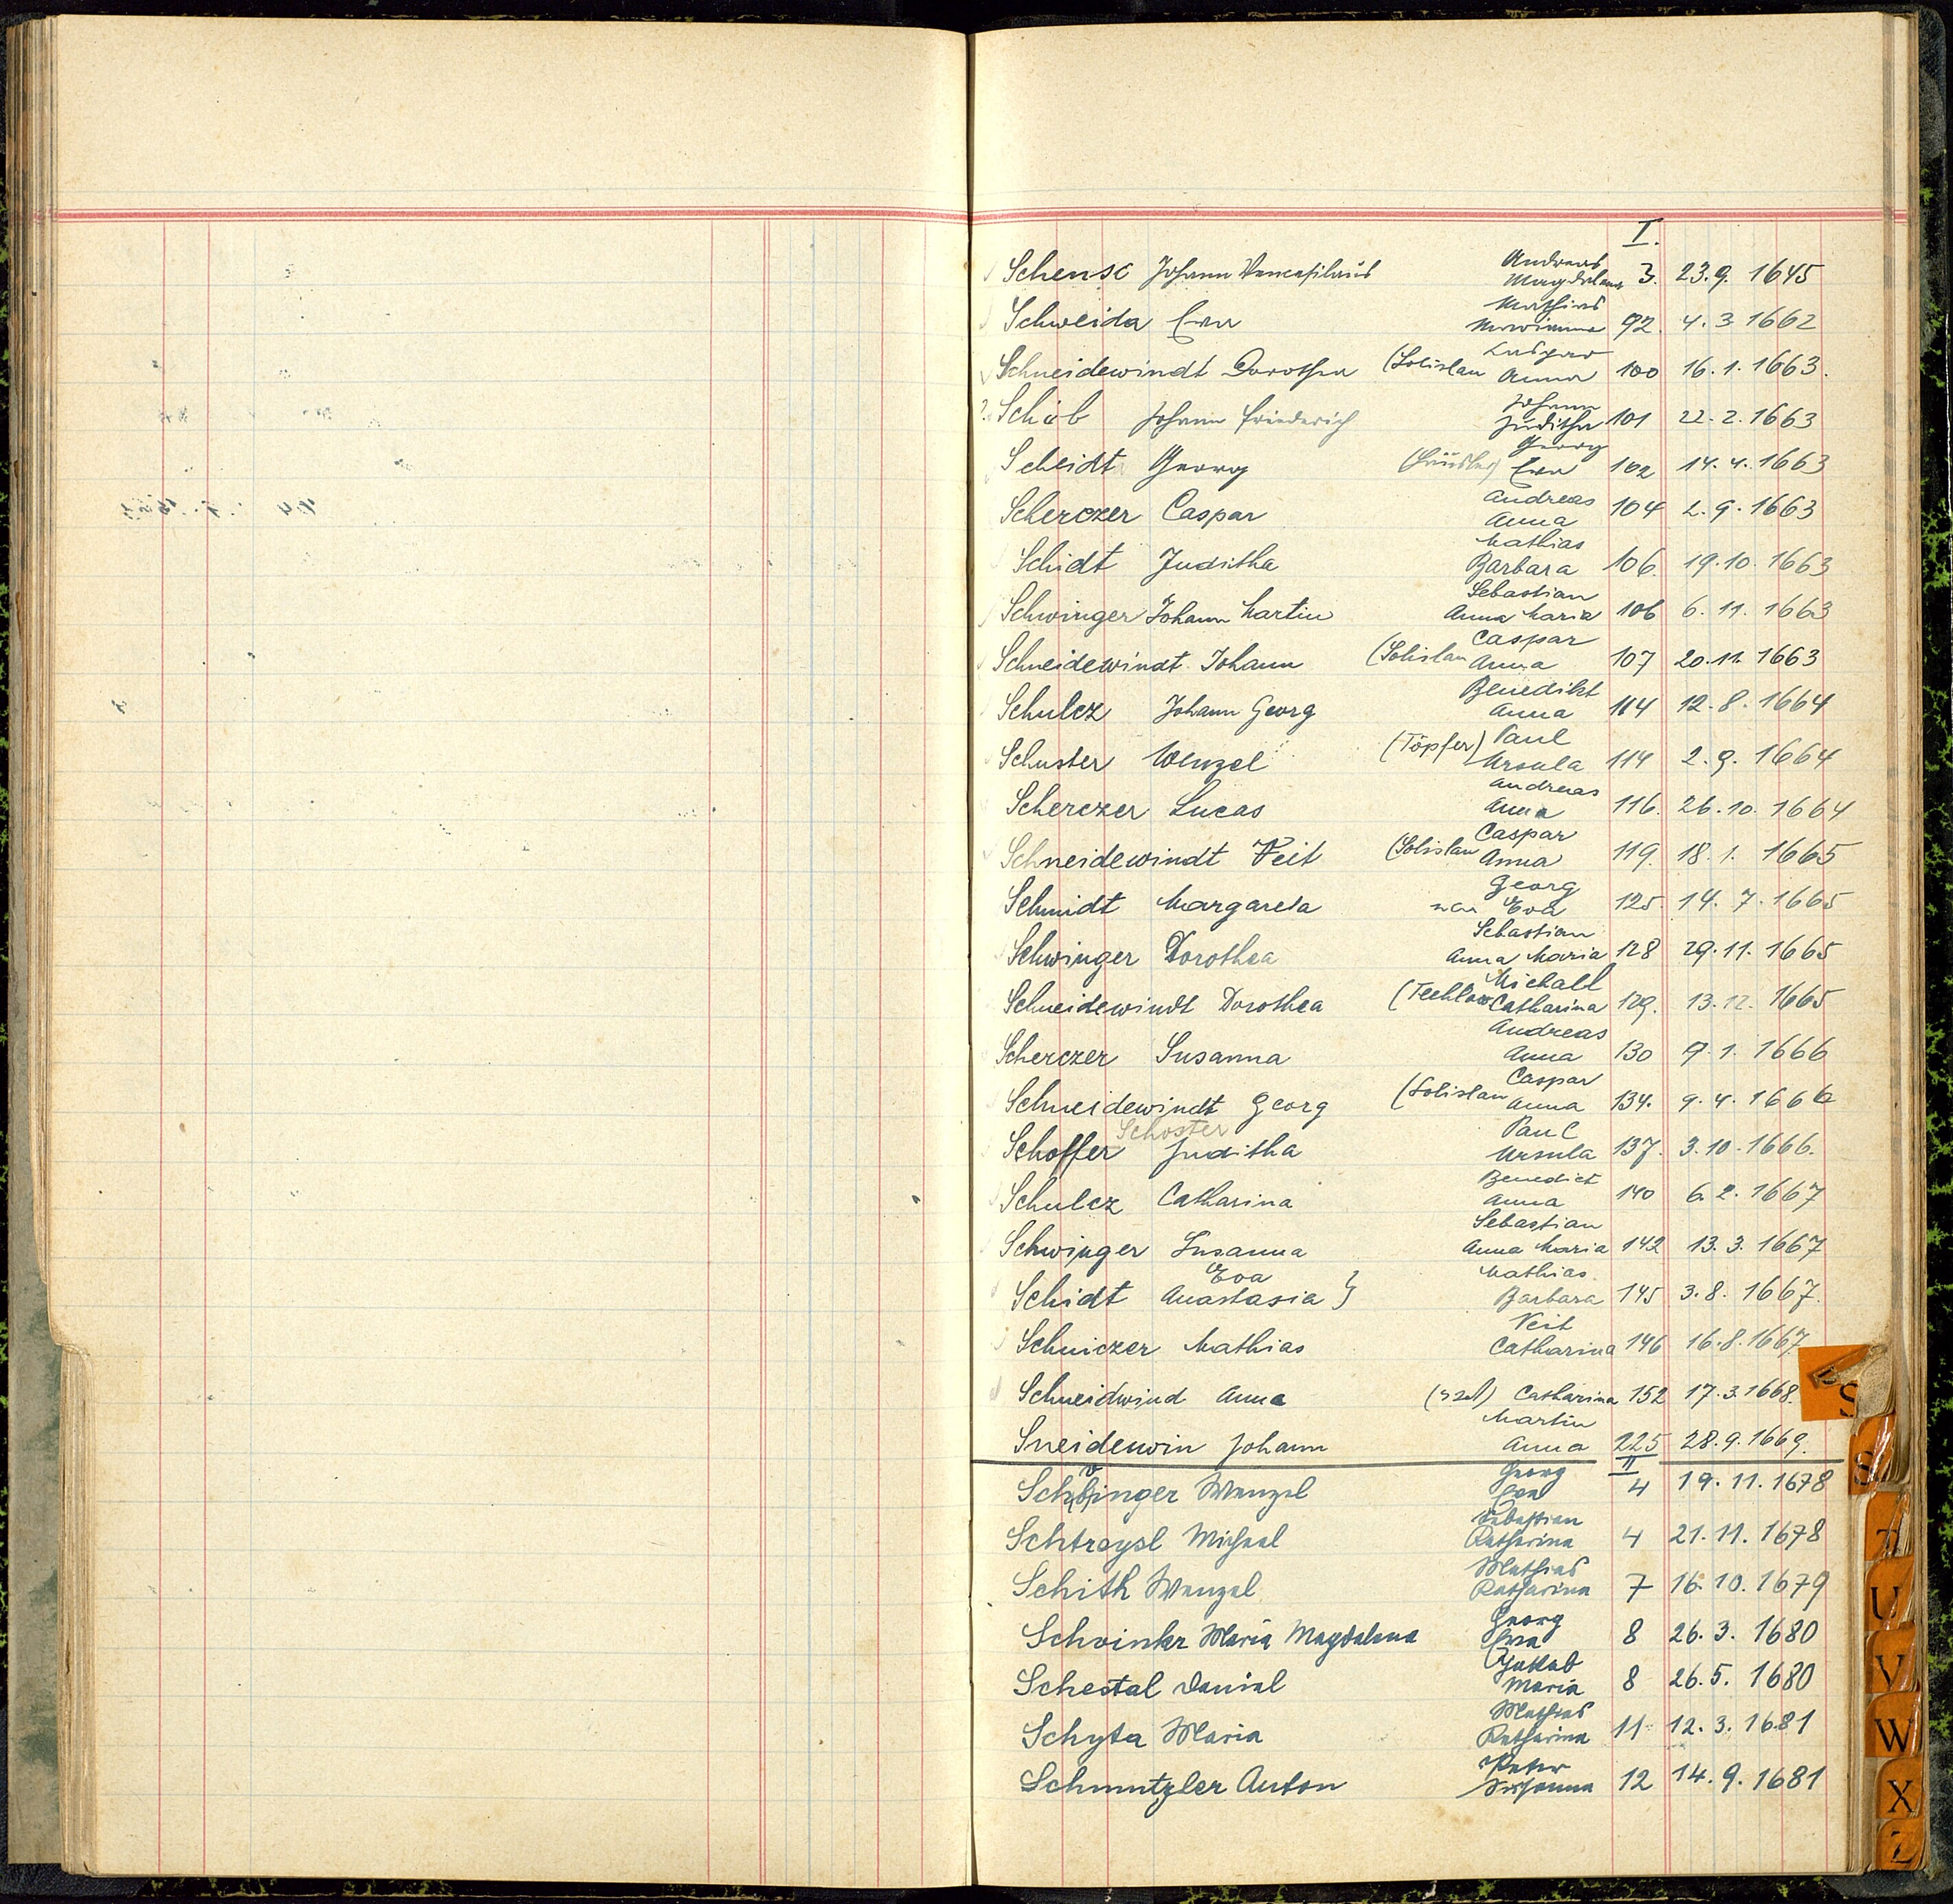 I.
Schensc Johann Venceslaus Andreas Magdalena 3. 23.9. 1645
Schweida Eva Mathias Marianna 92. 4. 3 1662
Schneidewindt Dorothea (Solislau Caspar Anna 100 16. 1. 1663.
Schib Johann Friederich Johann Juditha 101 22. 2. 1663
Scheidt Georg (Häusler) Georg Eva 102 14. 4. 1663
Scherczer Caspar Andreas Anna 104 2. 9. 1663
Schidt Juditha Mathias Barbara 106. 19. 10. 1663
Schwinger Johann Martin Sebastian Anna Maria 106 6. 11. 1663
Schneidewindt Johann (Solislau Caspar Anna 107 20. 11. 1663
Schulcz Johann Georg Benedikt Anna 114 12. 8. 1664
Schuster Wenzel (Töpfer) Paul Ursula 114 2. 9. 1664
Scherczer Lucas Andreas Anna 116. 26. 10. 1664
Schneidewindt Veit (Solislau Caspar Anna 119. 18. 1. 1665
Schmidt Margareta Georg Eva 125 14. 7. 1665
Schwinger Dorothea Sebastian Anna Maria 128 29. 11. 1665
Schneidewindt Dorothea (Techlow Michael Catharina 129. 13. 12. 1665
Scherczer Susanna Andreas Anna 130 9. 1. 1666
Schneidewindt Georg (Solislau Caspar Anna 134. 9. 4. 1666
Schoster
Schoffer Juditha Paul Ursula 137. 3. 10. 1666.
Schulcz Catharina Benedict Anna 140 6. 2. 1667
Schwinger Susanna Sebastian Anna Maria 142 13. 3. 1667
Schidt Eva Anastasia } Mathias Barbara 145 3. 8. 1667.
Schniczer Mathias Veit Catharina 146 16. 8. 1667.
Schneidwind Anna Catharina 152 17. 3. 1668.
Sneidenwin Johann Martin Anna 225 28. 9. 1669.
II
v
Schbinger Wenzel Georg Eva 4 19. 11. 1678
Schtreysl Michael Sebastian Katharina 4 21. 11. 1678
Schith Wenzel Mathias Katharina 7 16. 10. 1679
Schvinkr Maria Magdalena Georg Eva 8 26. 3. 1680
Schestal Daniel Jakob Maria 8 26. 5. 1680
Schyta Maria Mathias Katharina 11 12. 3. 1681
Schmutzler Anton Peter Susanna 12 14. 9. 1681
S
S
T
U
V
W
X
Z